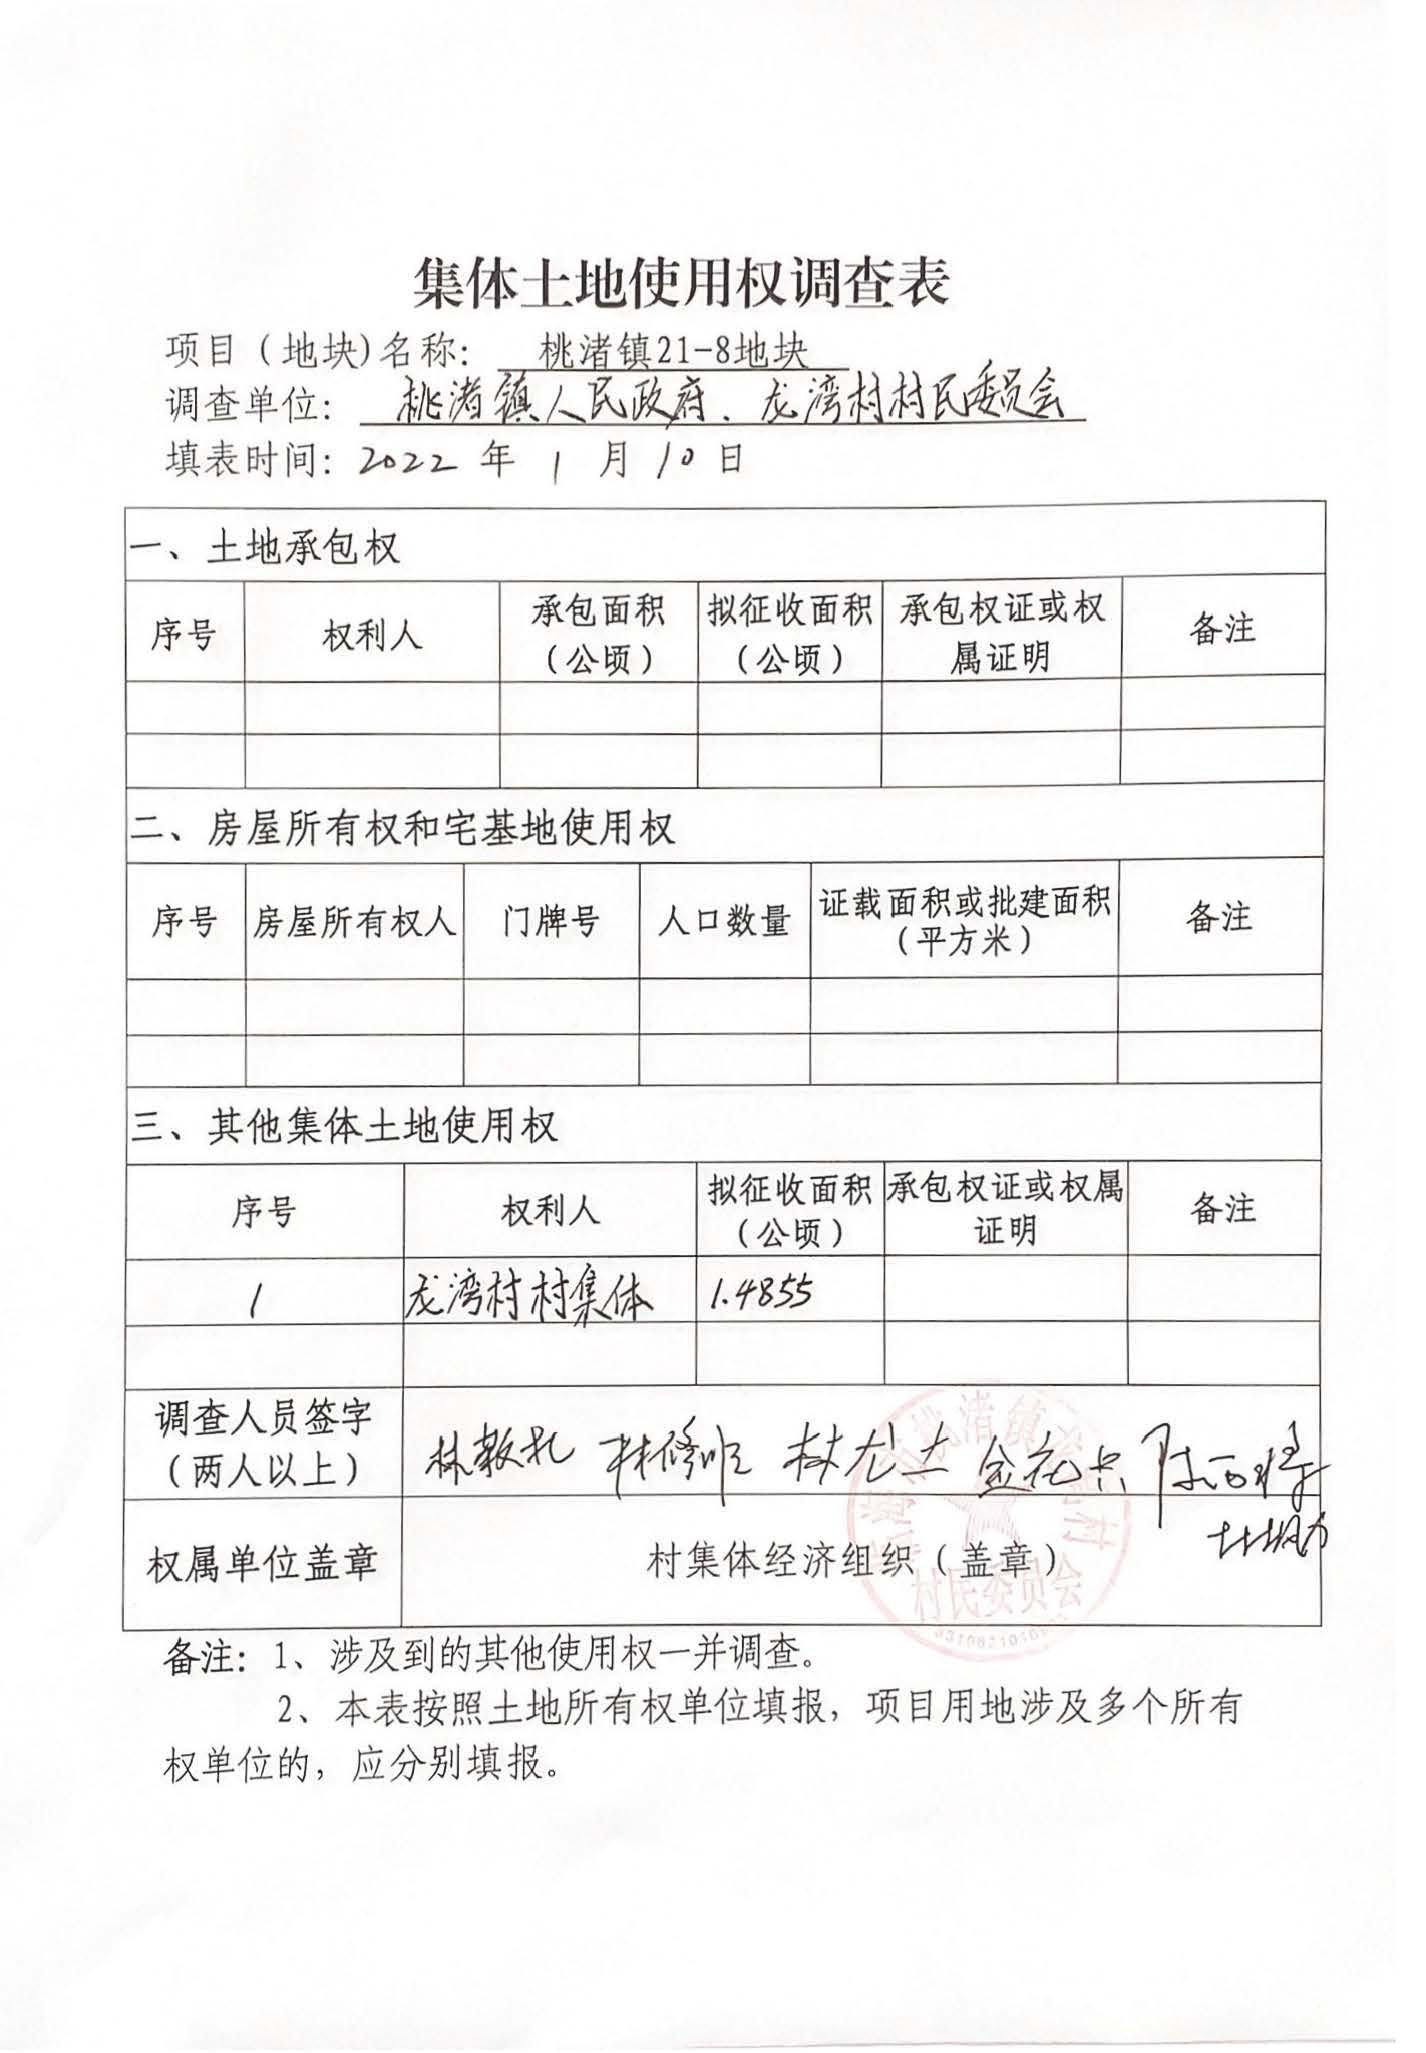 集体土地使用权调查表
项目（地块)名称： 桃渚镇21-8地块
调查单位： 桃渚镇人民政府、龙湾村村民委员会
填表时间：2022 年 1 月 10 日
一、土地承包权
序号 权利人 承包面积（公顷） 拟征收面积（公顷） 承包权证或权属证明 备注
二、房屋所有权和宅基地使用权
序号 房屋所有权人 门牌号 人口数量 证载面积或批建面积（平方米） 备注
三、其他集体土地使用权
序号 权利人 拟征收面积（公顷） 承包权证或权属证明 备注
1 龙湾村村集体 1.4855
调查人员签字
（两人以上）
权属单位盖章 村集体经济组织（盖章）
村民委员会
备注：1、涉及到的其他使用权一并调查。
2、本表按照土地所有权单位填报，项目用地涉及多个所有
权单位的，应分别填报。